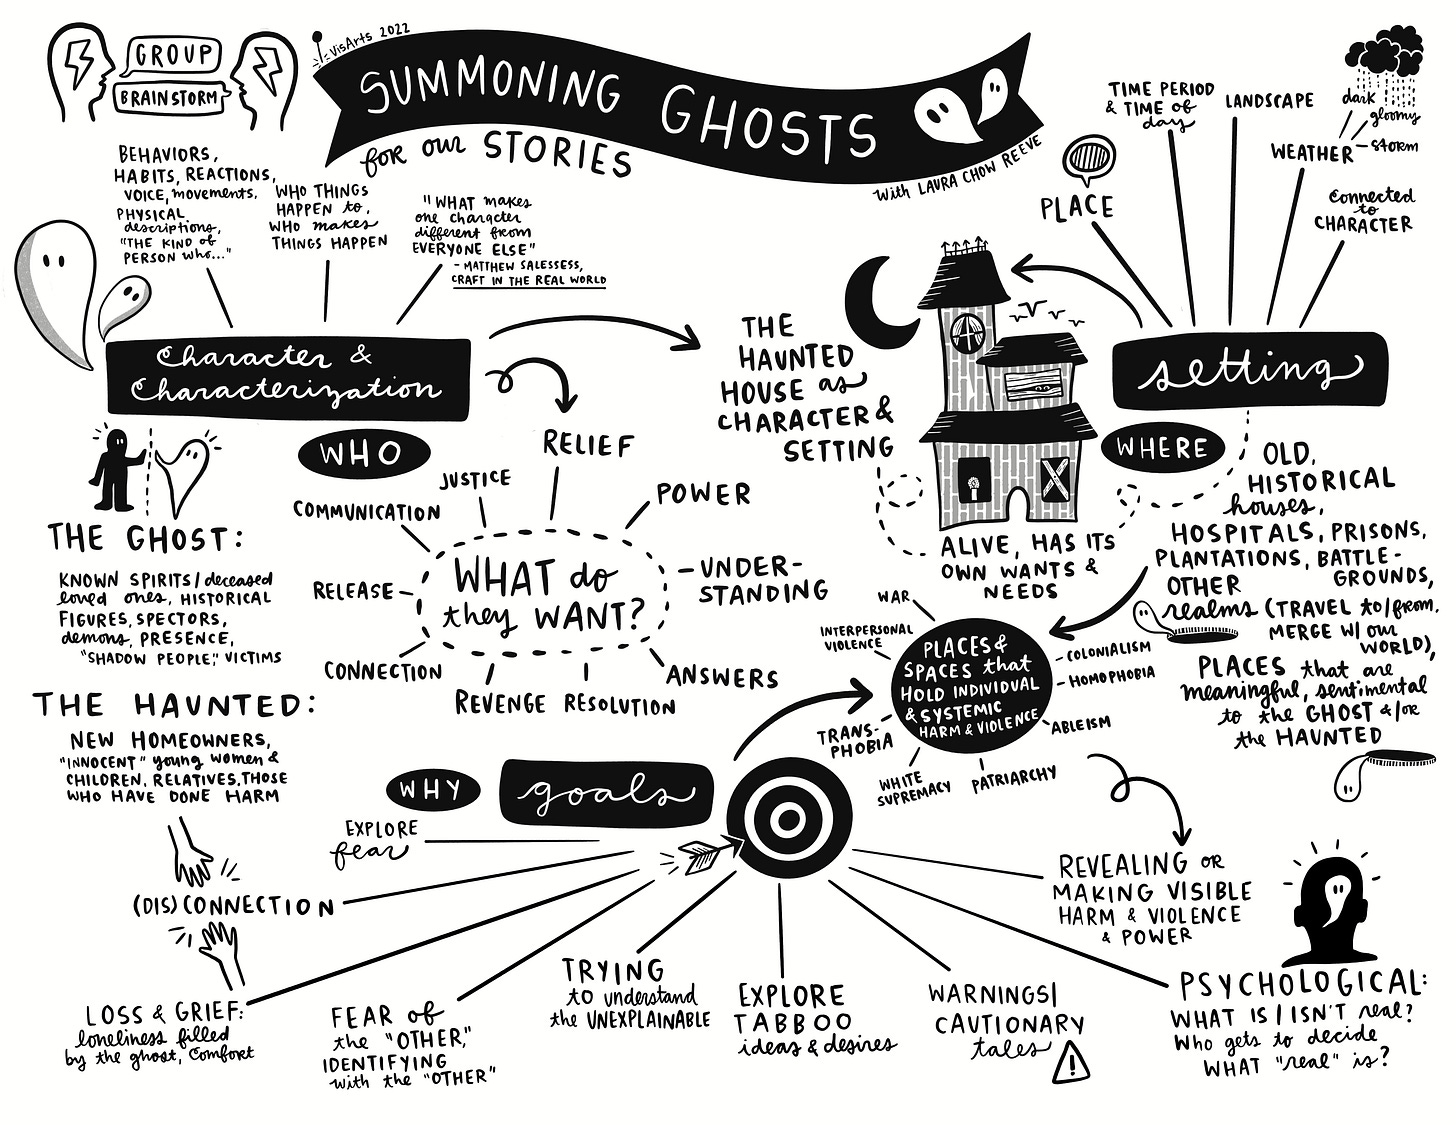 GROUP
BRAINSTORM
VisArts 2022
SUMMONING GHOSTS
for our STORIES
With LAURA CHOW REEVE
BEHAVIORS,
HABITS, REACTIONS,
VOICE, movements,
PHYSICAL
descriptions,
"THE KIND of
PERSON who..."
WHO THINGS
HAPPEN to,
WHO makes
THINGS HAPPEN
"WHAT makes
one character
different from
EVERYONE ELSE"
- MATTHEW SALESSESS,
CRAFT IN THE REAL WORLD
Character &
Characterization
WHO
THE GHOST:
KNOWN SPIRITS/deceased
loved ones, HISTORICAL
FIGURES, SPECTORS,
demons, PRESENCE,
"SHADOW PEOPLE," VICTIMS
THE HAUNTED:
NEW HOMEOWNERS,
"INNOCENT" young women &
CHILDREN, RELATIVES, THOSE
WHO HAVE DONE HARM
WHAT do
they WANT?
COMMUNICATION
JUSTICE
RELIEF
POWER
UNDER-
STANDING
ANSWERS
RESOLUTION
REVENGE
CONNECTION
RELEASE
THE
HAUNTED
HOUSE as
CHARACTER &
SETTING
ALIVE, HAS ITS
OWN WANTS &
NEEDS
PLACE
TIME PERIOD
& TIME of
day
LANDSCAPE
WEATHER
dark
gloomy
STORM
Connected
to
CHARACTER
setting
WHERE
OLD,
HISTORICAL
houses,
HOSPITALS, PRISONS,
PLANTATIONS, BATTLE-
GROUNDS,
OTHER
realms (TRAVEL to/from,
MERGE W/ our
WORLD),
PLACES that are
meaningful, sentimental
to the GHOST &/or
the HAUNTED
PLACES &
SPACES that
HOLD INDIVIDUAL
& SYSTEMIC
HARM & VIOLENCE
WAR
INTERPERSONAL
VIOLENCE
TRANS-
PHOBIA
WHITE
SUPREMACY
PATRIARCHY
ABLEISM
HOMOPHOBIA
COLONIALISM
WHY
goals
EXPLORE
fear
(DIS)CONNECTION
LOSS & GRIEF:
loneliness filled
by the ghost, comfort
FEAR of
the "OTHER,"
IDENTIFYING
with the "OTHER"
TRYING
to understand
the UNEXPLAINABLE
EXPLORE
TABBOO
ideas & desires
WARNINGS/
CAUTIONARY
tales
!
REVEALING or
MAKING VISIBLE
HARM & VIOLENCE
& POWER
PSYCHOLOGICAL:
WHAT IS/ISN'T real?
Who gets to decide
WHAT "real" is?